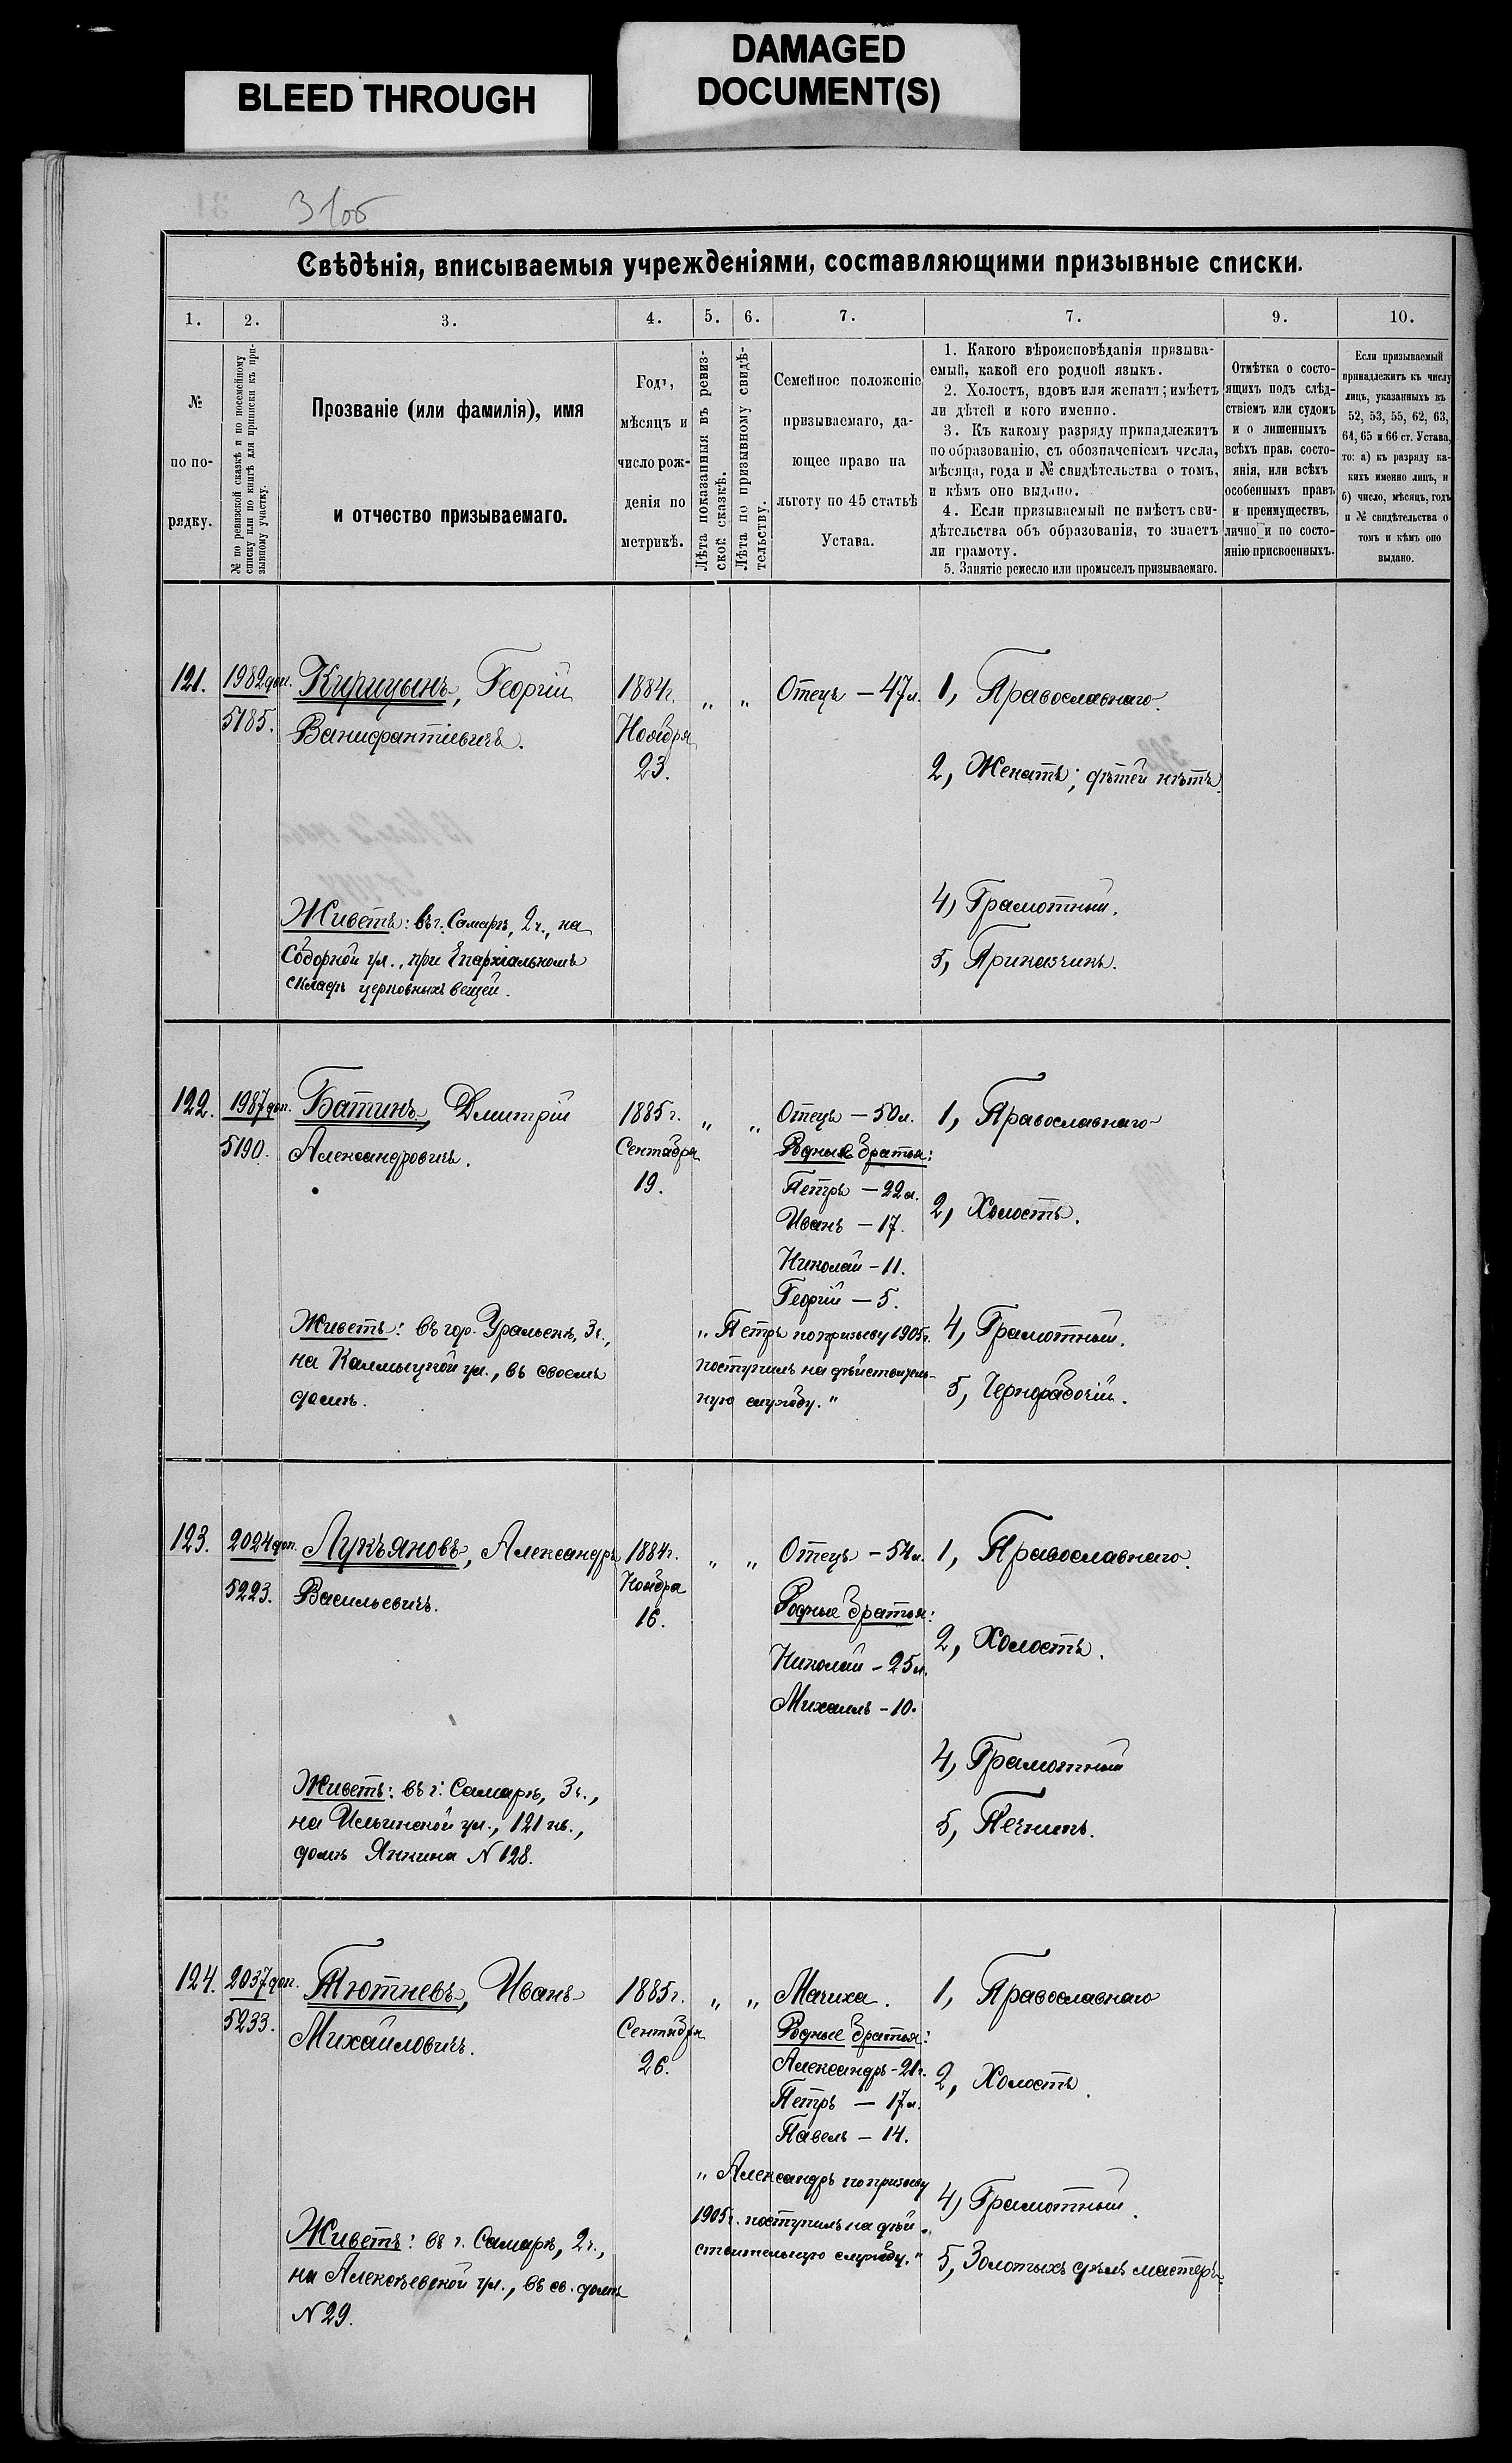 BLEED THROUGH
DAMAGED
DOCUMENT(S)
31об
Свѣдѣнія, вписываемыя учрежденіями, составляющими призывные списки.
1. 2. 3. 4. 5. 6. 7. 7. 9. 10.
№
по по-
рядку.
№ по ревизской сказкѣ и по посемейному
списку или по книгѣ для приписки къ при-
зывному участку.
Прозваніе (или фамилія), имя
и отчество призываемаго.
Годъ,
мѣсяцъ и
число рож-
денія по
метрикѣ.
Лѣта показанныя въ ревиз-
ской сказкѣ.
Лѣта по призывному свидѣ-
тельству.
Семейное положеніе
призываемаго, да-
ющее право на
льготу по 45 статьѣ
Устава.
1. Какого вѣроисповѣданія призыва-
емый, какой его родной языкъ.
2. Холостъ, вдовъ или женатъ; имѣетъ
ли дѣтей и кого именно.
3. Къ какому разряду принадлежитъ
по образованію, съ обозначеніемъ числа,
мѣсяца, года и № свидѣтельства о томъ,
и кѣмъ оно выдано.
4. Если призываемый не имѣетъ сви-
дѣтельства объ образованіи, то знаетъ
ли грамоту.
5. Занятіе ремесло или промыселъ призываемаго.
Отмѣтка о состо-
ящихъ подъ слѣд-
ствіемъ или судомъ
и о лишенныхъ
всѣхъ прав, состо-
янія, или всѣхъ
особенныхъ правъ
и преимуществъ,
лично и по состо-
янію присвоенныхъ.
Если призываемый
принадлежитъ къ числу
лицъ, указанныхъ въ
52, 53, 55, 62, 63,
64, 65 и 66 ст. Устава,
то: а) къ разряду ка-
кихъ именно лицъ, и
б) число, мѣсяцъ, годъ
и № свидѣтельства о
томъ и кѣмъ оно
выдано.
121. 1982 доп. Кирицынъ, Георгій 1884г. „ „ Отецъ – 47 л. 1, Православнаго.
5185. Ванифантіевичъ. Ноября
23. 2, Женатъ; дѣтей нѣтъ.
Живетъ: въ г. Самарѣ, 2 ч., на
Соборной ул., при Епархіальномъ
складѣ церковныхъ вещей.
4, Грамотный.
5, Приказчикъ.
122. 1987 доп. Батинъ, Дмитрій 1885 г. „ „ Отецъ – 50 л. 1, Православнаго
5190. Александровичъ. Сентября
19.
Родные братья:
Петръ – 22 л.
Иванъ – 17.
Николай – 11.
Георгій – 5.
2, Холостъ.
Живетъ: въ гор. Уральскѣ, 3 ч.,
на Калмыцкой ул., въ своемъ
домѣ.
„Петръ по призыву 1905 г.
поступилъ на дѣйствитель-
ную службу."
4, Грамотный.
5, Чернорабочій.
123. 2024 доп. Лукъяновъ, Александръ 1884 г. „ „ Отецъ – 54 л. 1, Православнаго.
5223. Васильевичъ. Ноября
16.
Родные братья:
Николай – 25 л.
Михаилъ – 10.
2, Холостъ.
Живетъ: въ г. Самарѣ, 3 ч.,
на Ильинской ул., 121 кв.,
домъ Янкина № 128.
4, Грамотный
5, Печникъ.
124. 2037 доп. Тютневъ, Иванъ 1885 г. „ „ Мачиха. 1, Православнаго
5233. Михайловичъ. Сентября
26.
Родные братья:
Александръ – 21 г.
Петръ – 17 л.
Павелъ – 14.
2, Холостъ.
„Александръ по призыву
1905 г. поступилъ на дѣй-
ствительную службу."
Живетъ: въ г. Самарѣ, 2 ч.,
на Алексѣевской ул., въ св. домѣ
№ 29.
4, Грамотный.
5, Золотыхъ дѣлъ мастеръ.